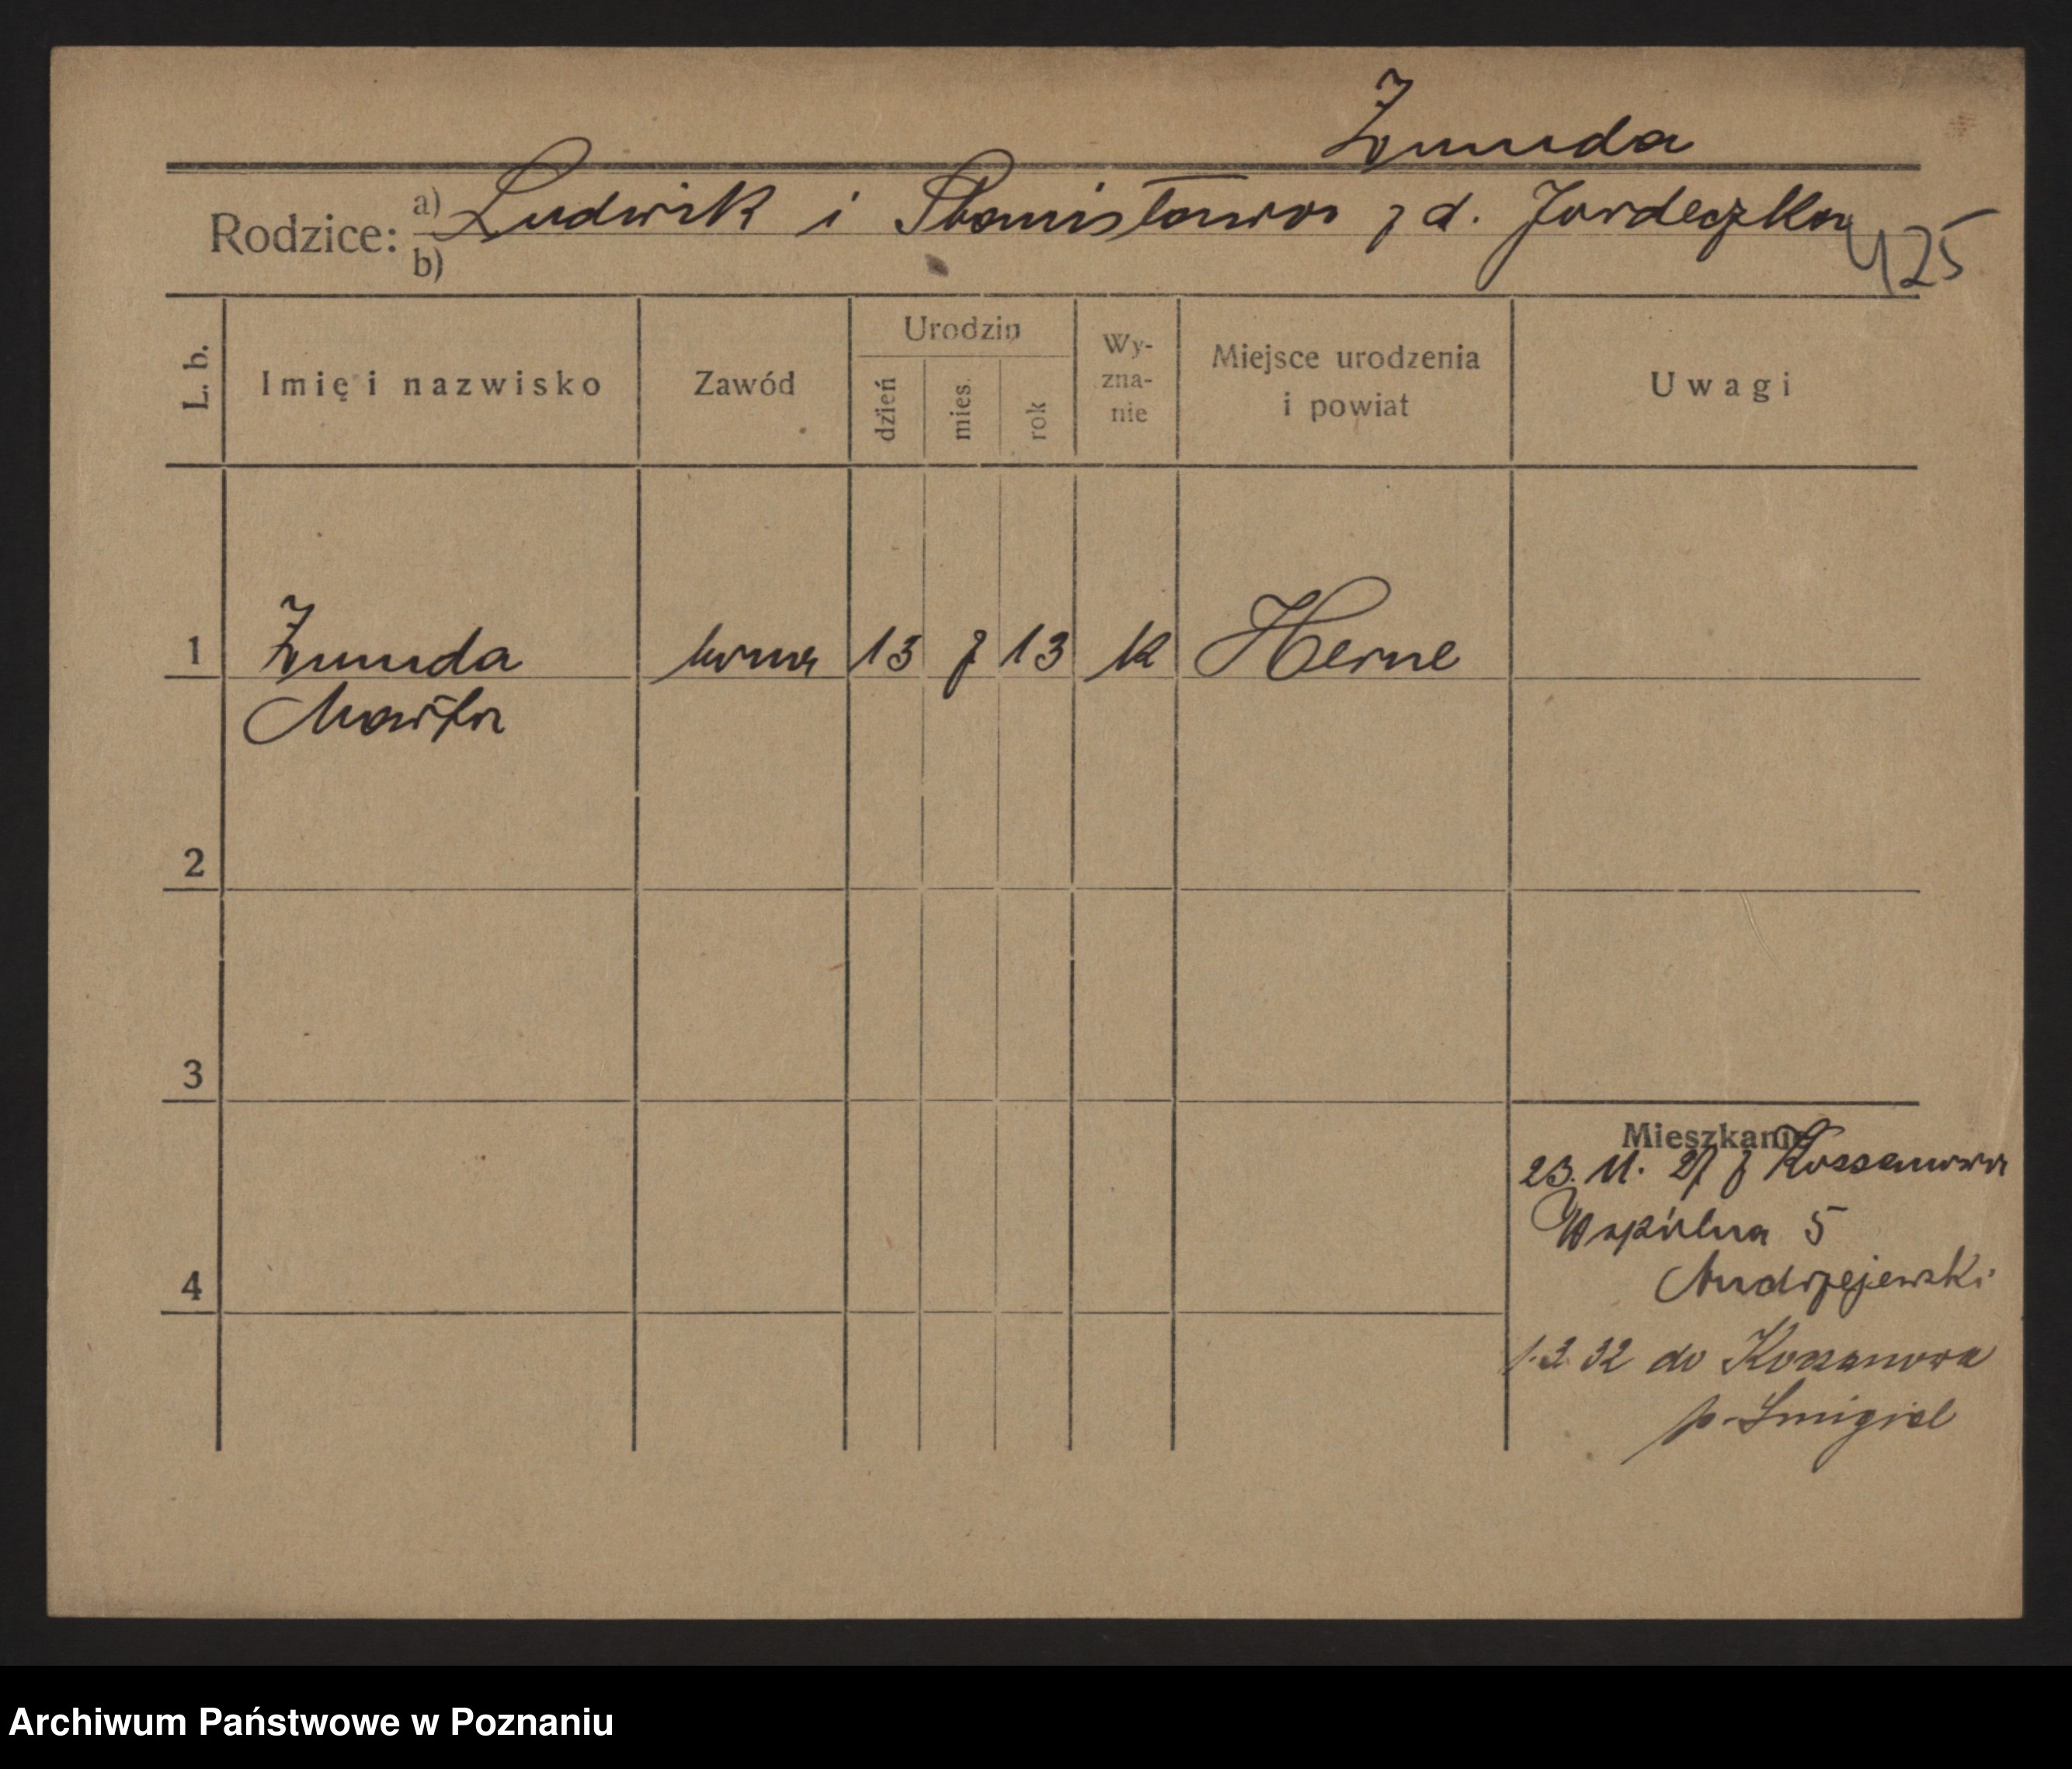 Żmuda
Rodzice: a) Ludwik i Stanisława z d. Jordeczka
b)
425
L. b.
Imię i nazwisko
Zawód
Urodzin
dzień
mies.
rok
Wy-
zna-
nie
Miejsce urodzenia
i powiat
Uwagi
1 Żmuda 13 7 13 k Herne
Marta
2
3
4
Mieszkanie
23. 11. 27 z Kossanowa
Wspólna 5
Andrzejewski
1.3.32 do Kossanowa
p. Śmigiel
Archiwum Państwowe w Poznaniu